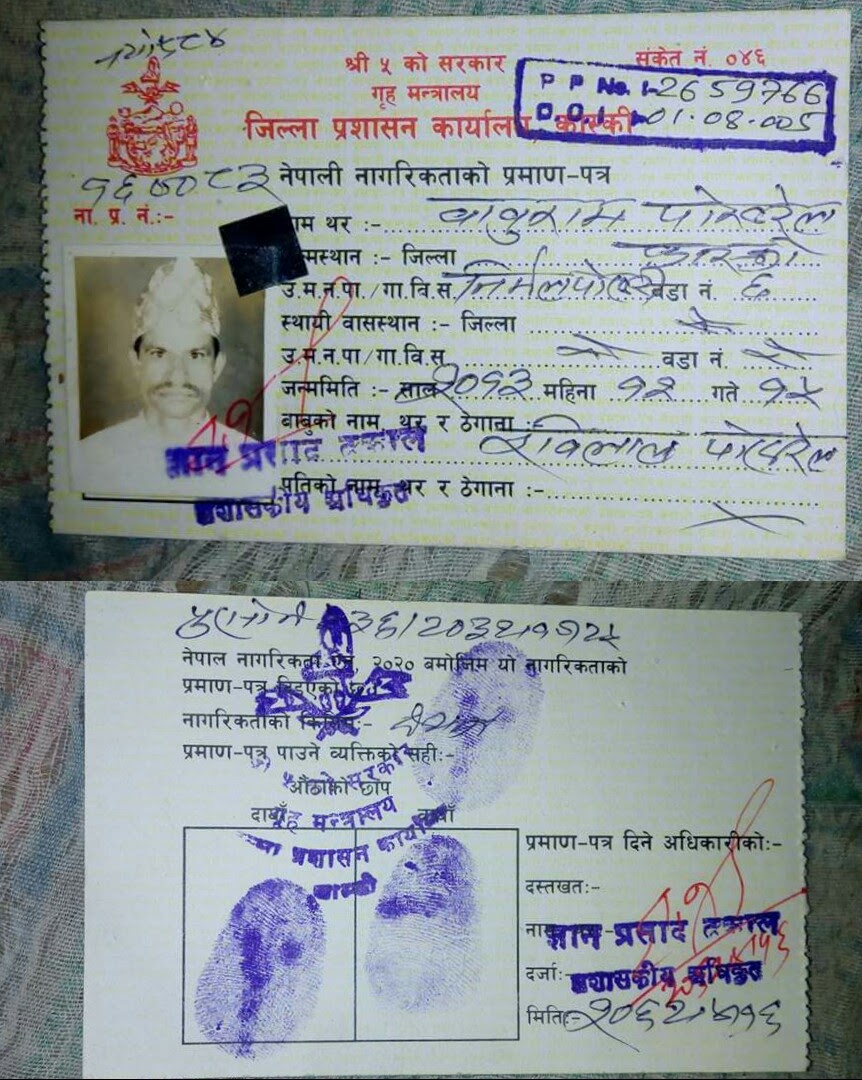 श्री ५ को सरकार
संकेत नं. ०४६
गृह मन्त्रालय
P P No. :- 2659766
जिल्ला प्रशासन कार्यालय, कास्की
D.O.I :- 01.08.005
नेपाली नागरिकताको प्रमाण-पत्र
ना. प्र. नं.:-
नाम थर :- बाबुराम पौडेल
जिल्ला कास्की
उ.म.न.पा./गा.वि.स. निर्मलपोखरी वडा नं. ६
स्थायी वासस्थान :- जिल्ला ऐ
उ.म.न.पा/गा.वि.स ऐ वडा नं. ऐ
जन्ममिति :- साल २०१३ महिना १२ गते १५
बाबुको नाम, थर र ठेगाना :-
ज्ञान प्रसाद ढकाल
पतिको नाम, थर र ठेगाना :-
प्रशासकीय अधिकृत
नेपाल नागरिकता ऐन, २०२० बमोजिम यो नागरिकताको
प्रमाण-पत्र दिइएको छ।
नागरिकताको किसिम:-
प्रमाण-पत्र पाउने व्यक्तिको सही:-
औंठाको छाप
दायाँ बायाँ
गृह मन्त्रालय
जिल्ला प्रशासन कार्यालय
कास्की
प्रमाण-पत्र दिने अधिकारीको:-
दस्तखत:-
ज्ञान प्रसाद ढकाल
दर्जा:- प्रशासकीय अधिकृत
मिति:-